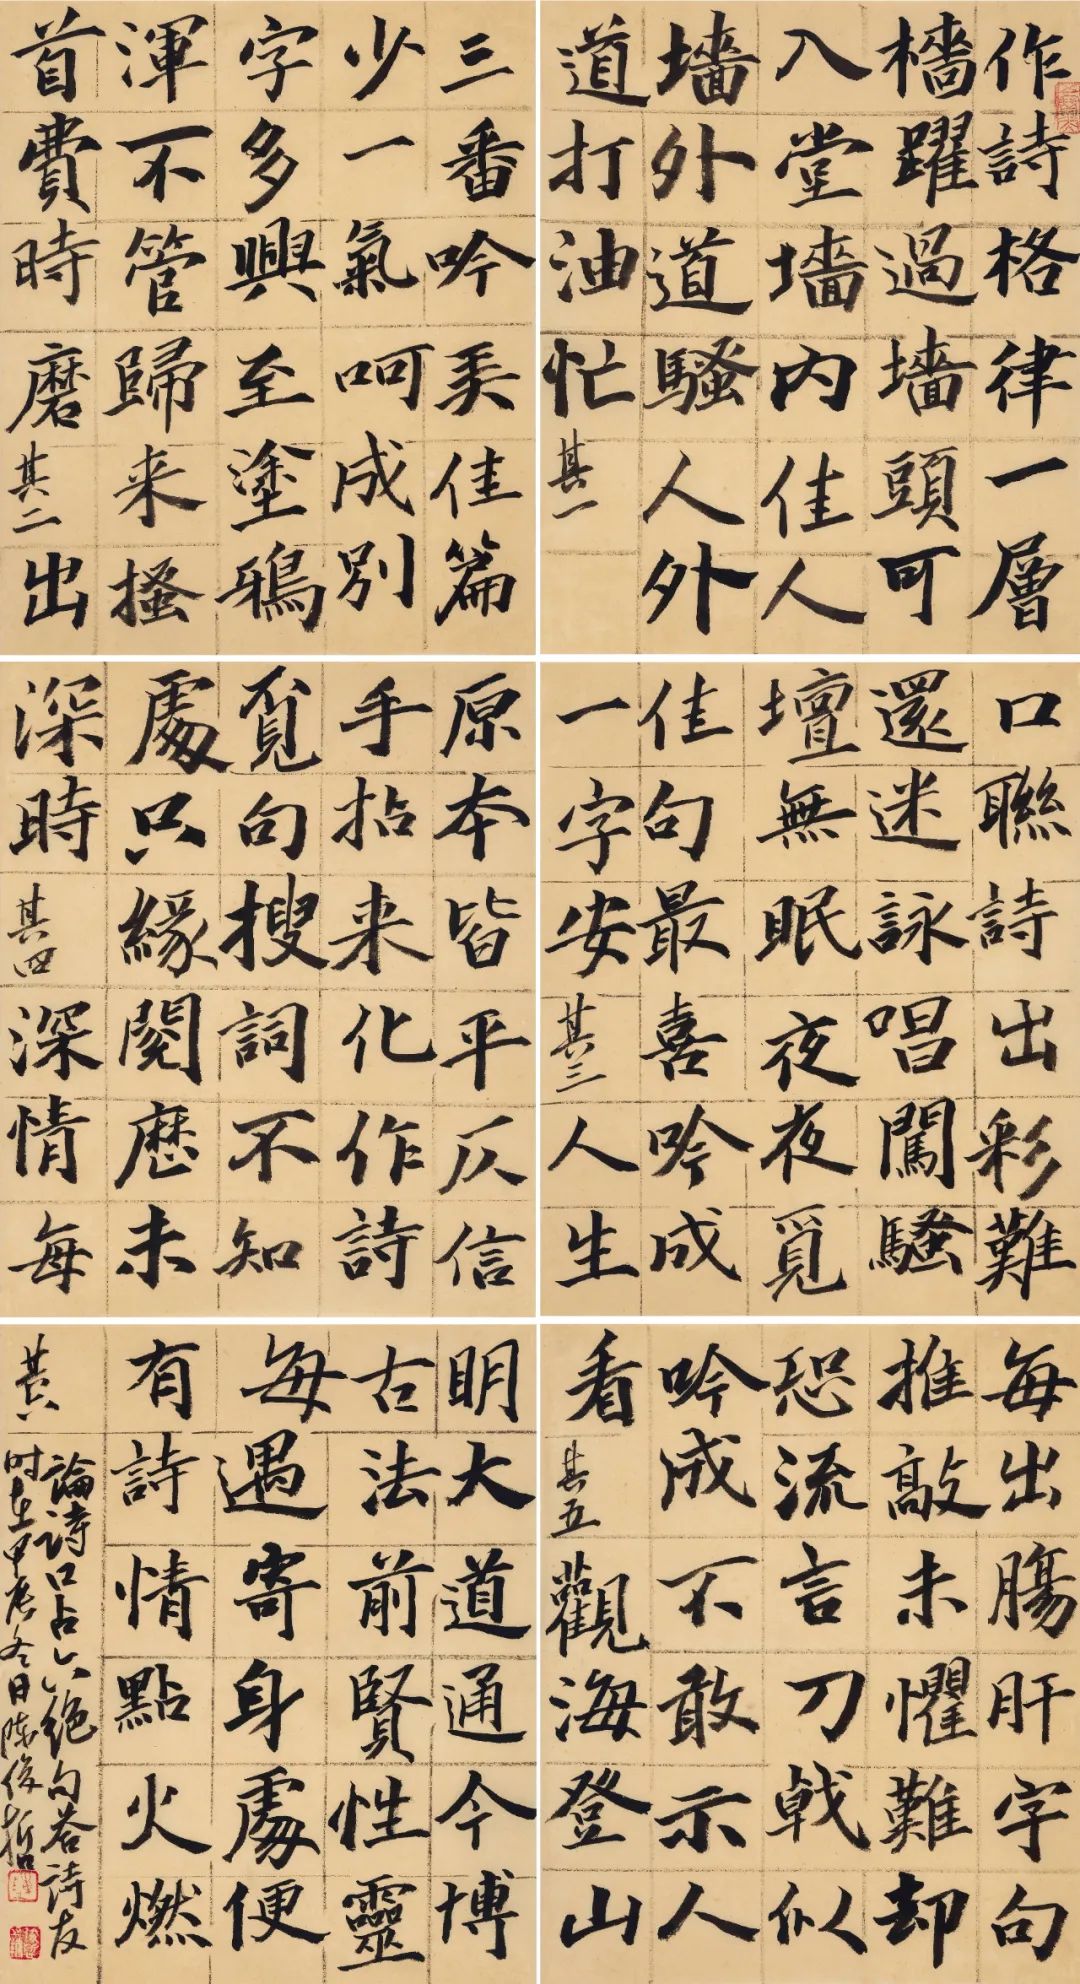 作詩格律一層
檣躍過墻頭可
入堂墻内佳人
墻外道騷人外
道打油忙其一
三番吟羙佳篇
少一氣呵成別
字多興至塗鴉
渾不管歸来搔
首費時磨其二出
口聯詩出彩難
還迷詠唱闖騷
壇無眠夜夜覓
佳句最喜吟成
一字安其三人生
原本皆平仄信
手拈来化作詩
覓句搜詞不知
處只緣閱歷未
深時其四深情每
每出腸肝字句
推敲未懼難却
恐流言刀戟似
吟成不敢示人
看其五觀海登山
明大道通今博
古法前賢性靈
每遇寄身處便
有詩情點火燃
其六
論詩口占六絕句答詩友
时在甲辰冬日陳俊哲